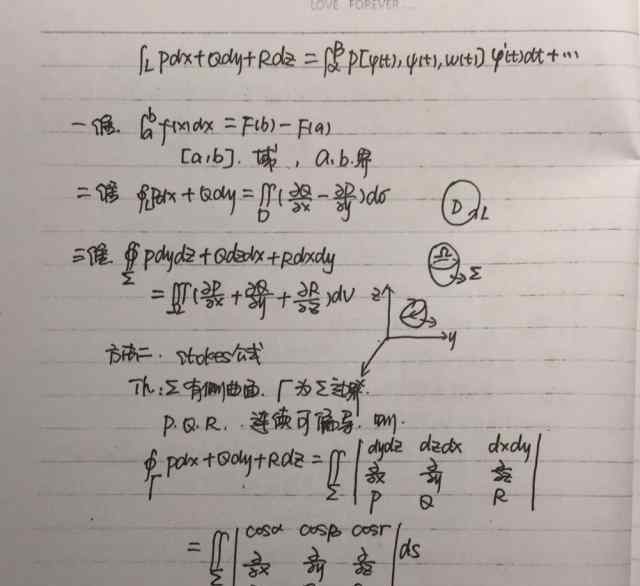 LOVE FOREVER
∫_L Pdx+Qdy+Rdz = ∫_α^β P[φ(t), ψ(t), w(t)] φ'(t)dt + ⋯
一维. ∫_a^b f(x)dx = F(b) - F(a)
[a,b]. 域, a.b.界
二维 ∮_L Pdx + Qdy = ∬_D (∂Q/∂x - ∂P/∂y)dσ D L
三维. ∯_Σ Pdydz + Qdzdx + Rdxdy Ω Σ
= ∭_Ω (∂P/∂x + ∂Q/∂y + ∂R/∂z)dv z y
方法二. Stokes公式
Th: Σ有侧曲面. Γ为Σ边界.
P.Q.R. 连续可偏导. 则.
∮_Γ Pdx+Qdy+Rdz = ∬_Σ | dydz dzdx dxdy
∂/∂x ∂/∂y ∂/∂z
P Q R |
= ∬_Σ | cosα cosβ cosr
∂/∂x ∂/∂y ∂/∂z | ds